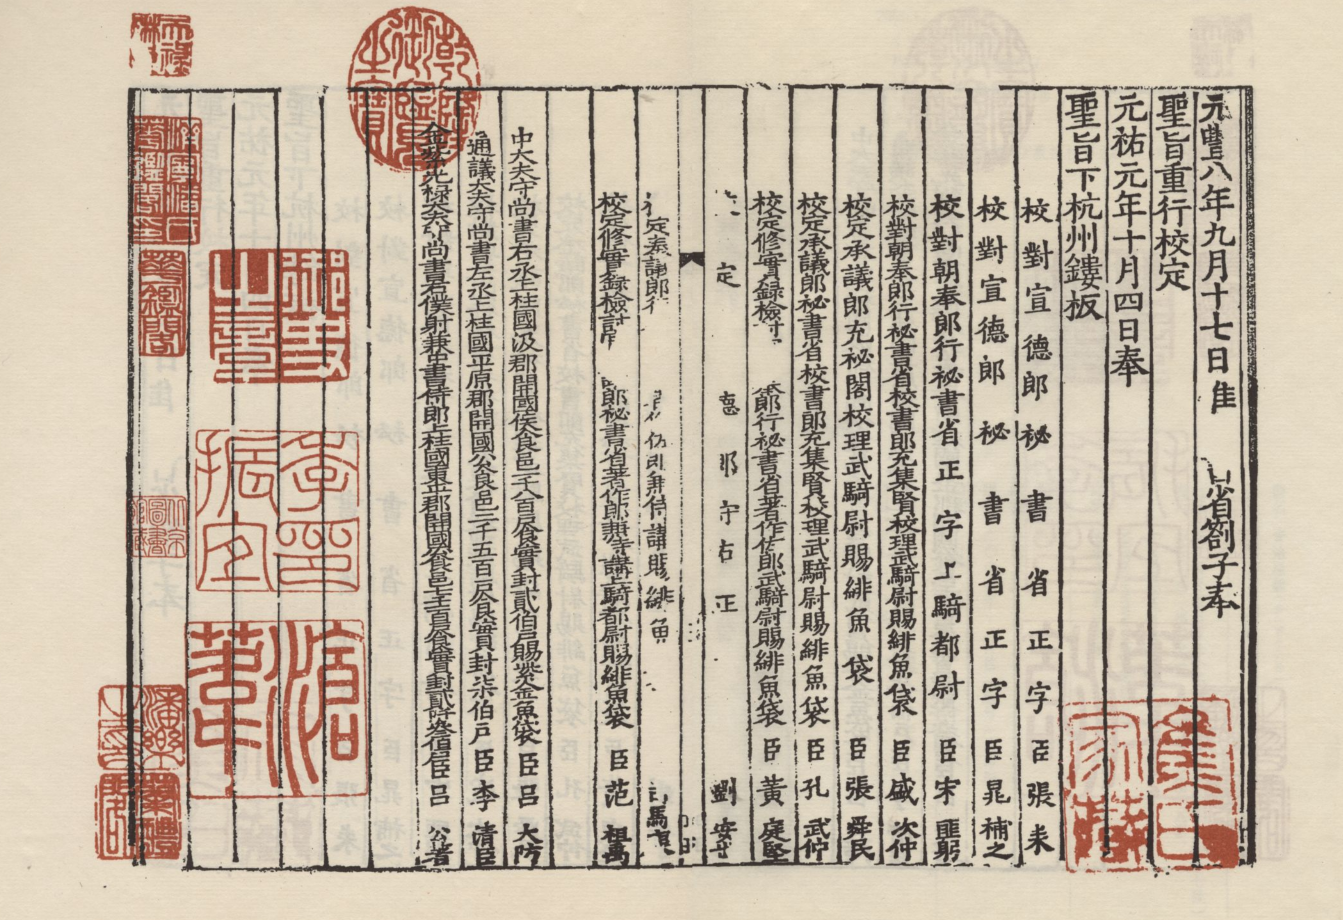 元豐八年九月十七日准省劄子奉
聖旨重行校定
元祐元年十月四日奉
聖旨下杭州鏤板
校對宣德郎秘書省正字臣張耒
校對宣德郎秘書省正字臣晁補之
校對朝奉郎行秘書省正字上騎都尉臣宋匪躬
校對朝奉郎行秘書省校書郎充集賢校理武騎尉賜緋魚袋臣盛次仲
校定承議郎充秘閣校理武騎尉賜緋魚袋臣張舜民
校定承議郎秘書省校書郎充集賢校理武騎尉賜緋魚袋臣孔武仲
校定修實録檢討郎行秘書省著作佐郎武騎尉賜緋魚袋臣黃庭堅
定郎守右正劉安
定奉議郎行兼侍講賜緋魚司馬
校定修實録檢討郎秘書省著作郎兼侍講上騎都尉賜緋魚袋臣范祖禹
中大夫守尚書右丞上柱國汲郡開國侯食邑一千八百戶食實封貳伯戶賜紫金魚袋臣呂大防
通議大夫守尚書左丞上柱國平原郡開國公食邑二千五百戶食實封柒伯戶臣李清臣
金紫光祿大夫守尚書右僕射兼中書侍郎上柱國東平郡開國公食邑百戶食實封貳阡叁伯戶臣呂公著
乾隆御覽之寶
天祿琳琅
御史之章
季振宜印
滄葦